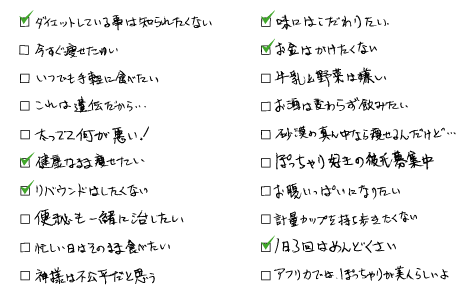 ダイエットしている事は知られたくない
今すぐ痩せたい
いつでも手軽に食べたい
これは遺伝だから…
太ってて何が悪い!
健康なまま痩せたい
リバウンドはしたくない
便秘も一緒に治したい
忙しい日はそのまま食べたい
神様は不公平だと思う
味にはこだわりたい
お金はかけたくない
牛乳と野菜は嫌い
お酒は変わらず飲みたい
砂漠の真ん中なら痩せるんだけど…
ぽっちゃり好きの彼氏募集中
お腹いっぱいになりたい
計量カップを持ち歩きたくない
1日3回はめんどくさい
アフリカでは、ぽっちゃりが美人らしいよ